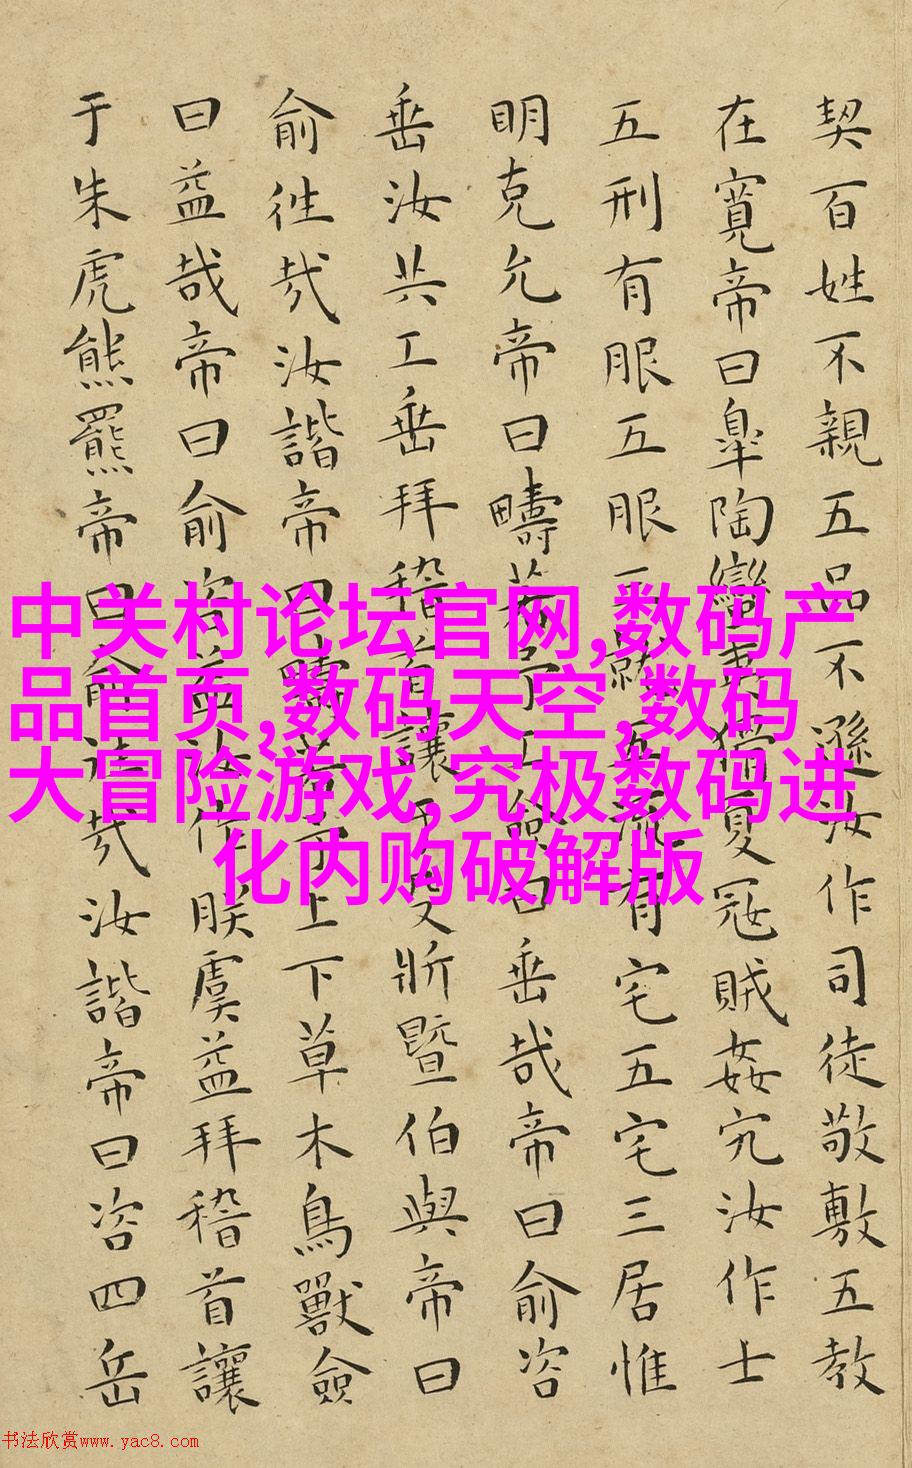 契百姓不親五品不遜汝作司徒敬敷五教
在寬帝曰皐陶蠻夷猾夏冦賊姦宄汝作士
五刑有服五服三就五流有宅五宅三居惟
明克允帝曰疇若予工僉曰垂哉帝曰俞咨
垂汝共工垂拜稽首讓于殳斨暨伯與帝曰
俞徃哉汝諧帝曰疇若予上下草木鳥獸僉
曰益哉帝曰俞咨益汝作朕虞益拜稽首讓
于朱虎熊羆帝曰俞徃哉汝諧帝曰咨四岳
中关村论坛官网,数码产
品首页,数码天空,数码
大冒险游戏,究极数码进
化内购破解版
书法欣赏www.yac8.com